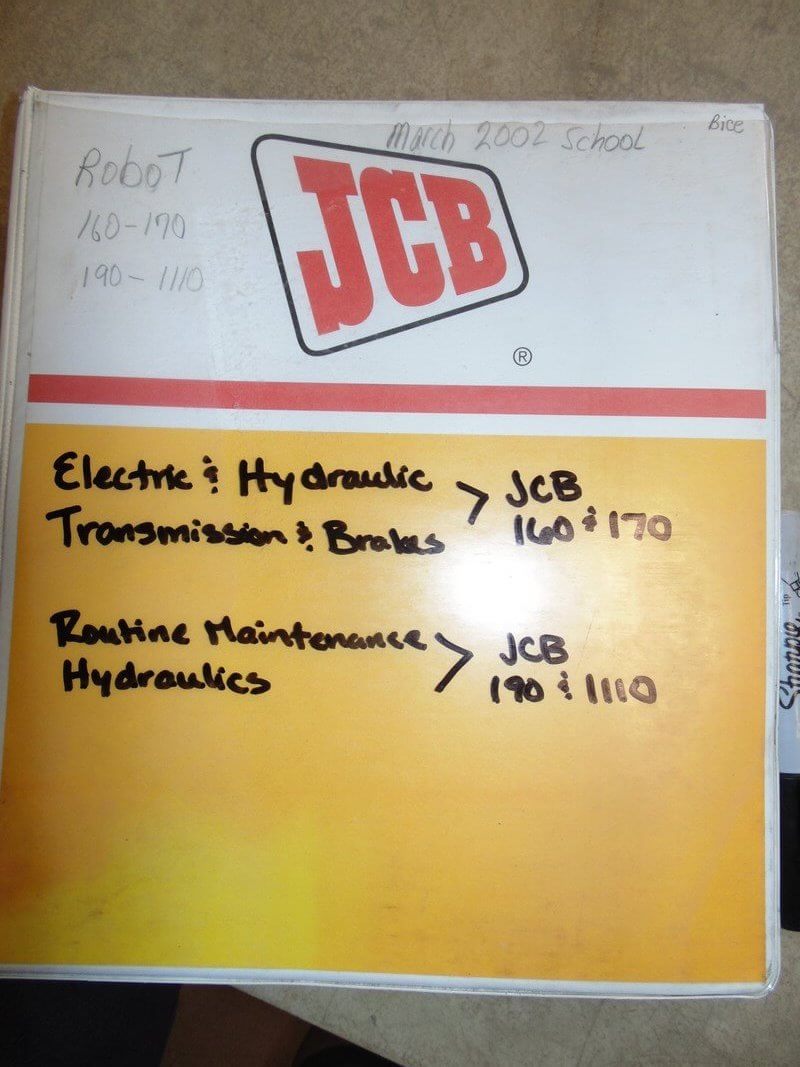 March 2002 School
Bice
Robot
160-170
190-1110
JCB
®
Electric & Hydraulic
Transmission & Brakes
> JCB
160 & 170
Routine Maintenance
Hydraulics
> JCB
190 & 1110
Sharpie